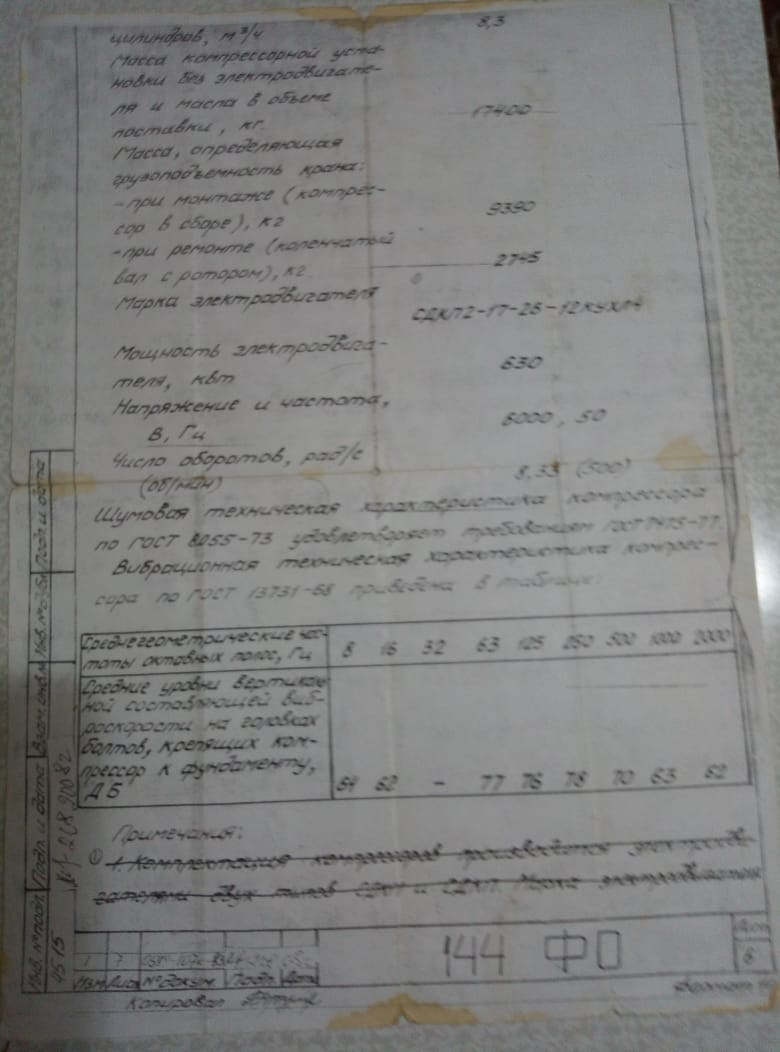 цилиндров, м³/ч 8,3
Масса компрессорной уста-
новки без электродвигате-
ля и масла в объеме
поставки, кг. 17400
Масса, определяющая
грузоподъемность крана:
-при монтаже (компрес-
сор в сборе), кг 9390
-при ремонте (коленчатый
вал с ротором), кг 2745
Марка электродвигателя СДКП2-17-26-12КУХЛ4
Мощность электродвига-
теля, квт 630
Напряжение и частота,
В, Гц 6000, 50
Число оборотов, рад/с
(об/мин) 8,33 (500)
Шумовая техническая характеристика компрессора
по ГОСТ 8055-73 удовлетворяет требованиям ГОСТ 7475-77.
Вибрационная техническая характеристика компрес-
сора по ГОСТ 13731-68 приведена в таблице:
Среднегеометрические час-
тоты октавных полос, Гц 8 16 32 63 125 250 500 1000 2000
Средние уровни вертикаль
ной составляющей виб-
роскорости на головках
болтов, крепящих ком-
прессор к фундаменту,
ДБ 64 62 - 77 76 78 70 63 62
Примечания:
1. Комплектация компрессоров производится электродви-
гателями двух типов СДКП и СДКП. Марка электродвигателя
144 ФО
Лист
6
1 7
Изм Лист № докум. Подп. Дата
Копировал
Формат
Инв. № подл. Подп. и дата Взам. инв. № Инв. № дубл. Подп. и дата
4515